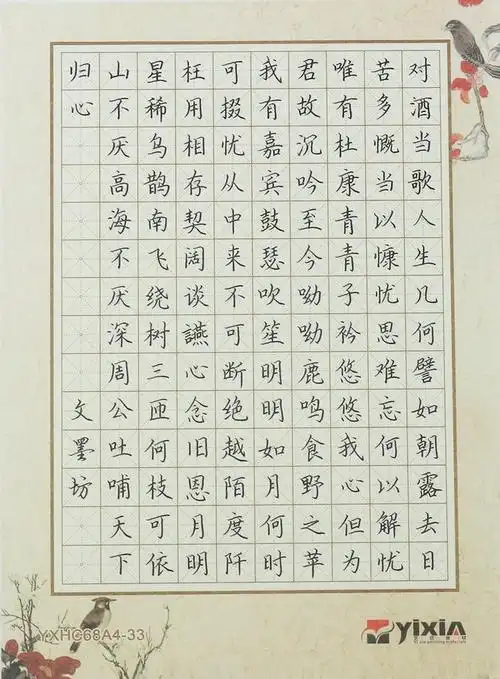 对酒当歌人生几何譬如朝露去日
苦多慨当以慷忧思难忘何以解忧
唯有杜康青青子衿悠悠我心但为
君故沉吟至今呦呦鹿鸣食野之苹
我有嘉宾鼓瑟吹笙明明如月何时
可掇忧从中来不可断绝越陌度阡
枉用相存契阔谈讌心念旧恩月明
星稀乌鹊南飞绕树三匝何枝可依
山不厌高海不厌深周公吐哺天下
归心 文墨坊
YXHC68A4-33
yixin